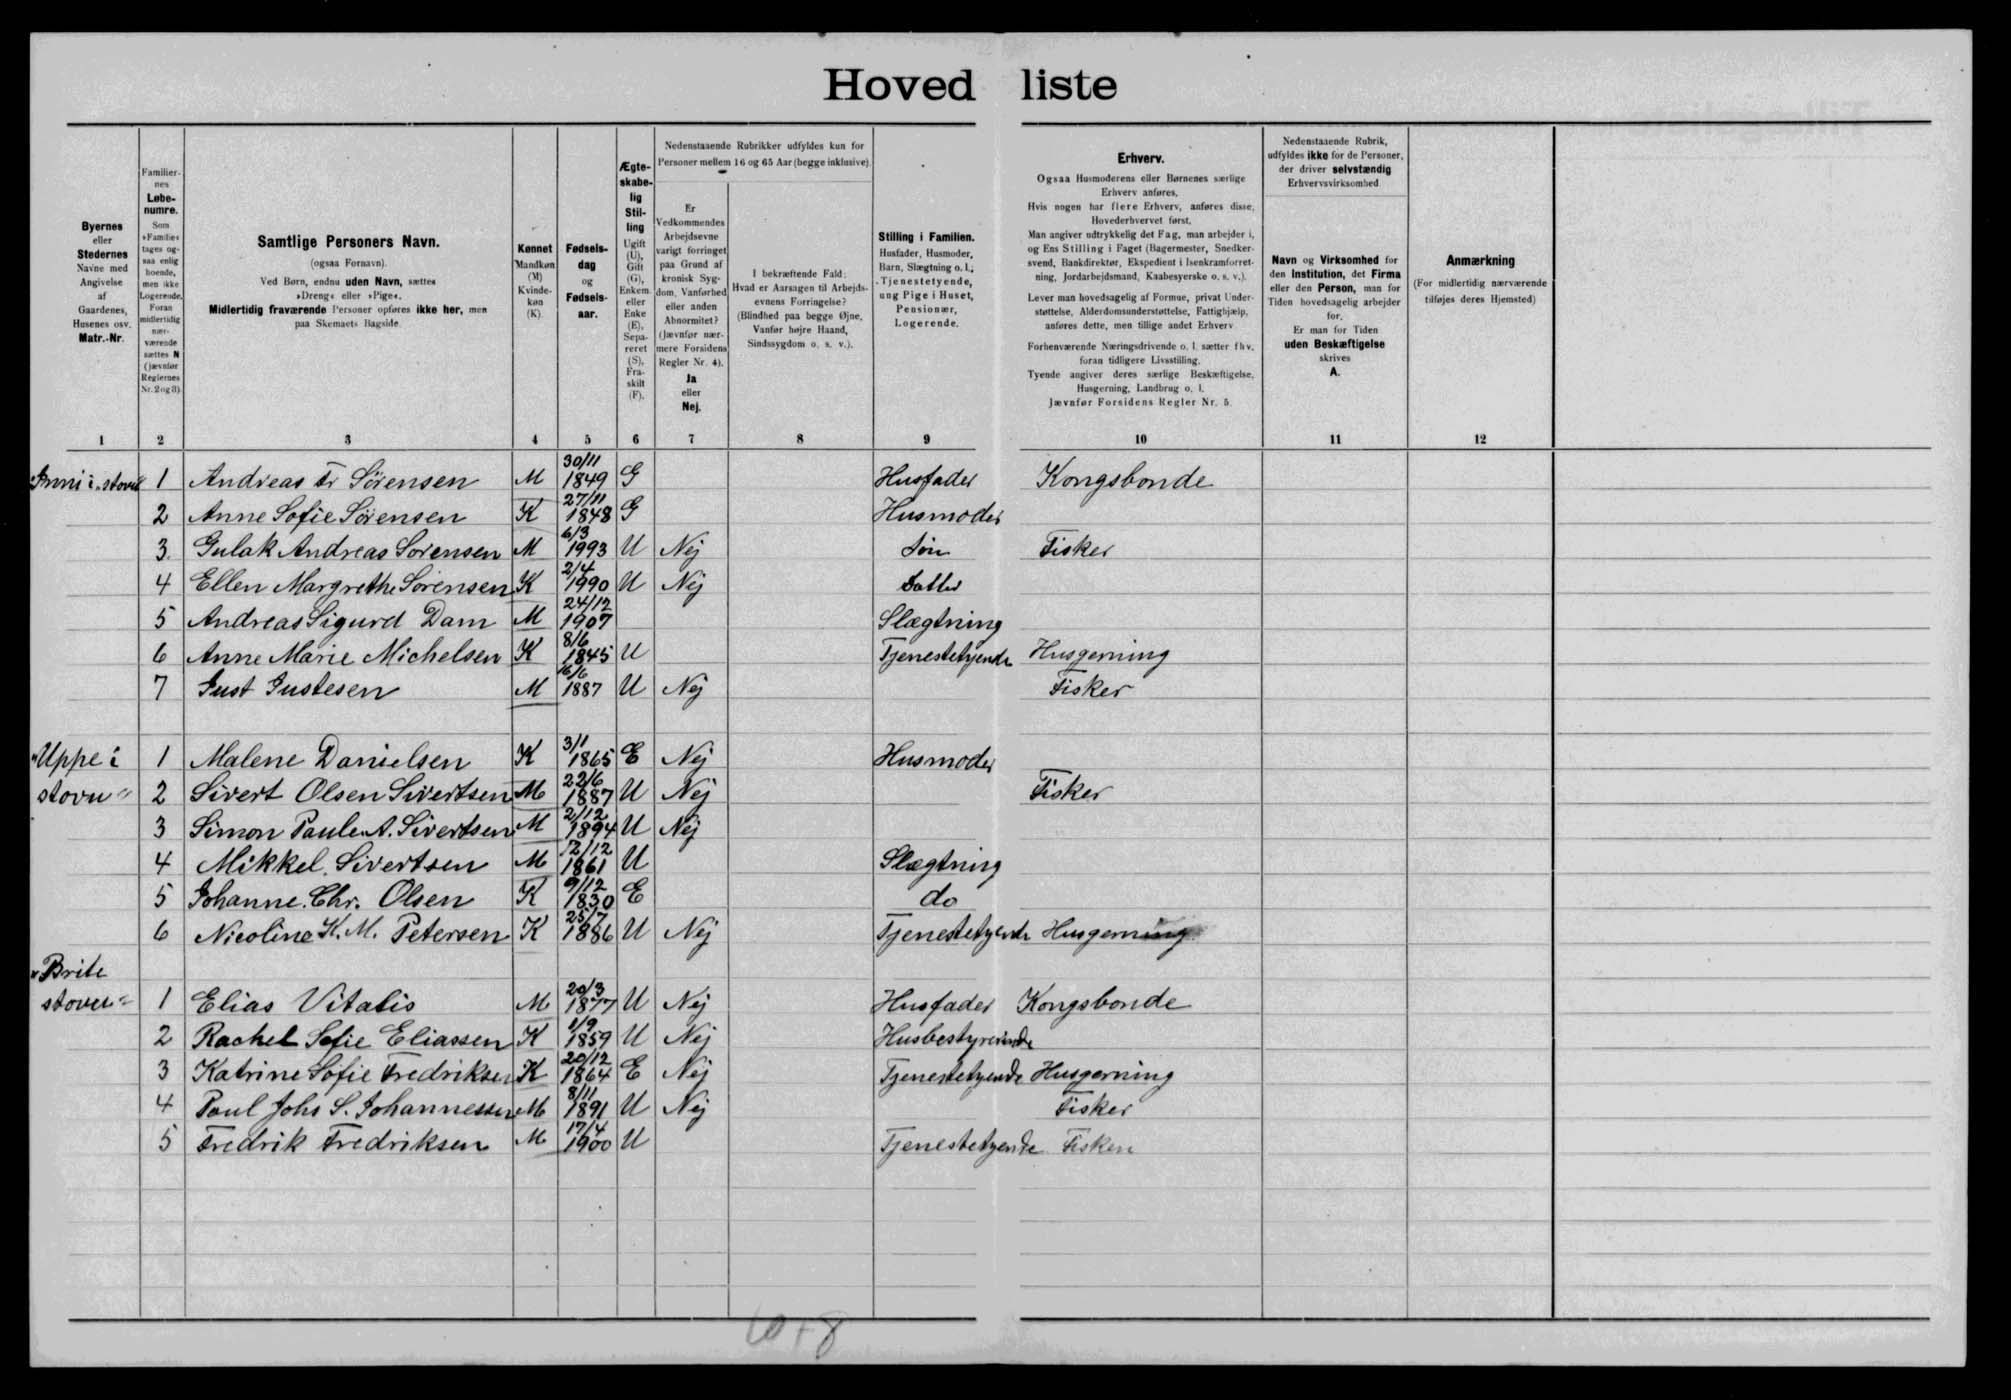 Hovedliste
Byernes
eller
Stedernes
Navne med
Angivelse
af
Gaardenes,
Husenes osv.
Matr.-Nr.
Familier-
nes
Løbe-
numre.
Som
»Familie«
tages og-
saa enlig
boende,
men ikke
Logerende.
Foran
midlertidig
nær-
værende
sættes N
(jævnfør
Reglernes
Nr. 2 og 3).
Samtlige Personers Navn.
(ogsaa Fornavn).
Ved Børn, endnu uden Navn, sættes
»Dreng« eller »Pige«.
Midlertidig fraværende Personer opføres ikke her, men
paa Skemaets Bagside.
Kønnet
Mandkøn
(M)
Kvinde-
køn
(K).
Fødsels-
dag
og
Fødsels-
aar.
Ægte-
skabe-
lig
Stil-
ling
Ugift
(U),
Gift
(G),
Enkem.
eller
Enke
(E),
Sepa-
reret
(S),
Fra-
skilt
(F).
Nedenstaaende Rubrikker udfyldes kun for
Personer mellem 16 og 65 Aar (begge inklusive).
Er
Vedkommendes
Arbejdsevne
varigt forringet
paa Grund af
kronisk Syg-
dom, Vanførhed
eller anden
Abnormitet?
(Jævnfør nær-
mere Forsidens
Regler Nr. 4).
Ja
eller
Nej.
I bekræftende Fald:
Hvad er Aarsagen til Arbejds-
evnens Forringelse?
(Blindhed paa begge Øjne,
Vanfør højre Haand,
Sindssygdom o. s. v.).
Stilling i Familien.
Husfader, Husmoder,
Barn, Slægtning o. l.;
Tjenestetyende,
ung Pige i Huset,
Pensionær,
Logerende.
Erhverv.
Ogsaa Husmoderens eller Børnenes særlige
Erhverv anføres.
Hvis nogen har flere Erhverv, anføres disse,
Hovederhvervet først.
Man angiver udtrykkelig det Fag, man arbejder i,
og Ens Stilling i Faget (Bagermester, Snedker-
svend, Bankdirektør, Ekspedient i Isenkramforret-
ning, Jordarbejdsmand, Kaabesyerske o. s. v.).
Lever man hovedsagelig af Formue, privat Under-
støttelse, Alderdomsunderstøttelse, Fattighjælp,
anføres dette, men tillige andet Erhverv
Forhenværende Næringsdrivende o. l. sætter fhv.
foran tidligere Livsstilling.
Tyende angiver deres særlige Beskæftigelse,
Husgerning, Landbrug o. l.
Jævnfør Forsidens Regler Nr. 5.
Nedenstaaende Rubrik,
udfyldes ikke for de Personer,
der driver selvstændig
Erhvervsvirksomhed
Navn og Virksomhed for
den Institution, det Firma
eller den Person, man for
Tiden hovedsagelig arbejder
for.
Er man for Tiden
uden Beskæftigelse
skrives
A.
Anmærkning
(For midlertidig nærværende
tilføjes deres Hjemsted)
1 2 3 4 5 6 7 8 9 10 11 12
"Inni i stovu" 1 Andreas Fr Sörensen M 30/11 1849 G Husfader Kongsbonde
2 Anne Sofie Sörensen K 27/11 1848 G Husmoder
3. Gulak Andreas Sorensen M 6/3 1993 U Nej Sön Fisker
4 Ellen Margrethe Sorensen K 2/4 1990 U Nej Datter
5 Andreas Sigurd Dam M 24/12 1907 Slægtning
6 Anne Marie Michelsen K 8/6 1845 U Tjenestetyende Husgerning
7 Just Justesen M 16/6 1887 U Nej Fisker
"Uppe i 1 Malene Danielsen K 3/1 1865 E Nej Husmoder
stovu" 2 Sivert Olsen Sivertsen M 22/6 1887 U Nej Fisker
3 Simon Paule A. Sivertsen M 2/12 1894 U Nej
4 Mikkel. Sivertsen M 12/12 1861 U Slægtning
5 Johanne. Chr. Olsen K 9/12 1830 E do
6 Nicoline K. M. Petersen K 25/7 1886 U Nej Tjenestetyende Husgerning
"Brite
stover" 1 Elias Vitalis M 20/3 1877 U Nej Husfader Kongsbonde
2 Rachel Sofie Eliassen K 1/9 1859 U Nej Husbestyrerinde
3 Katrine Sofie Fredriksen K 20/12 1864 E Nej Tjenestetyende Husgerning
4 Poul Johs S. Johannessen M 8/11 1891 U Nej Fisker
5 Fredrik Fredriksen M 17/4 1900 U Tjenestetyende Fisken
10+8